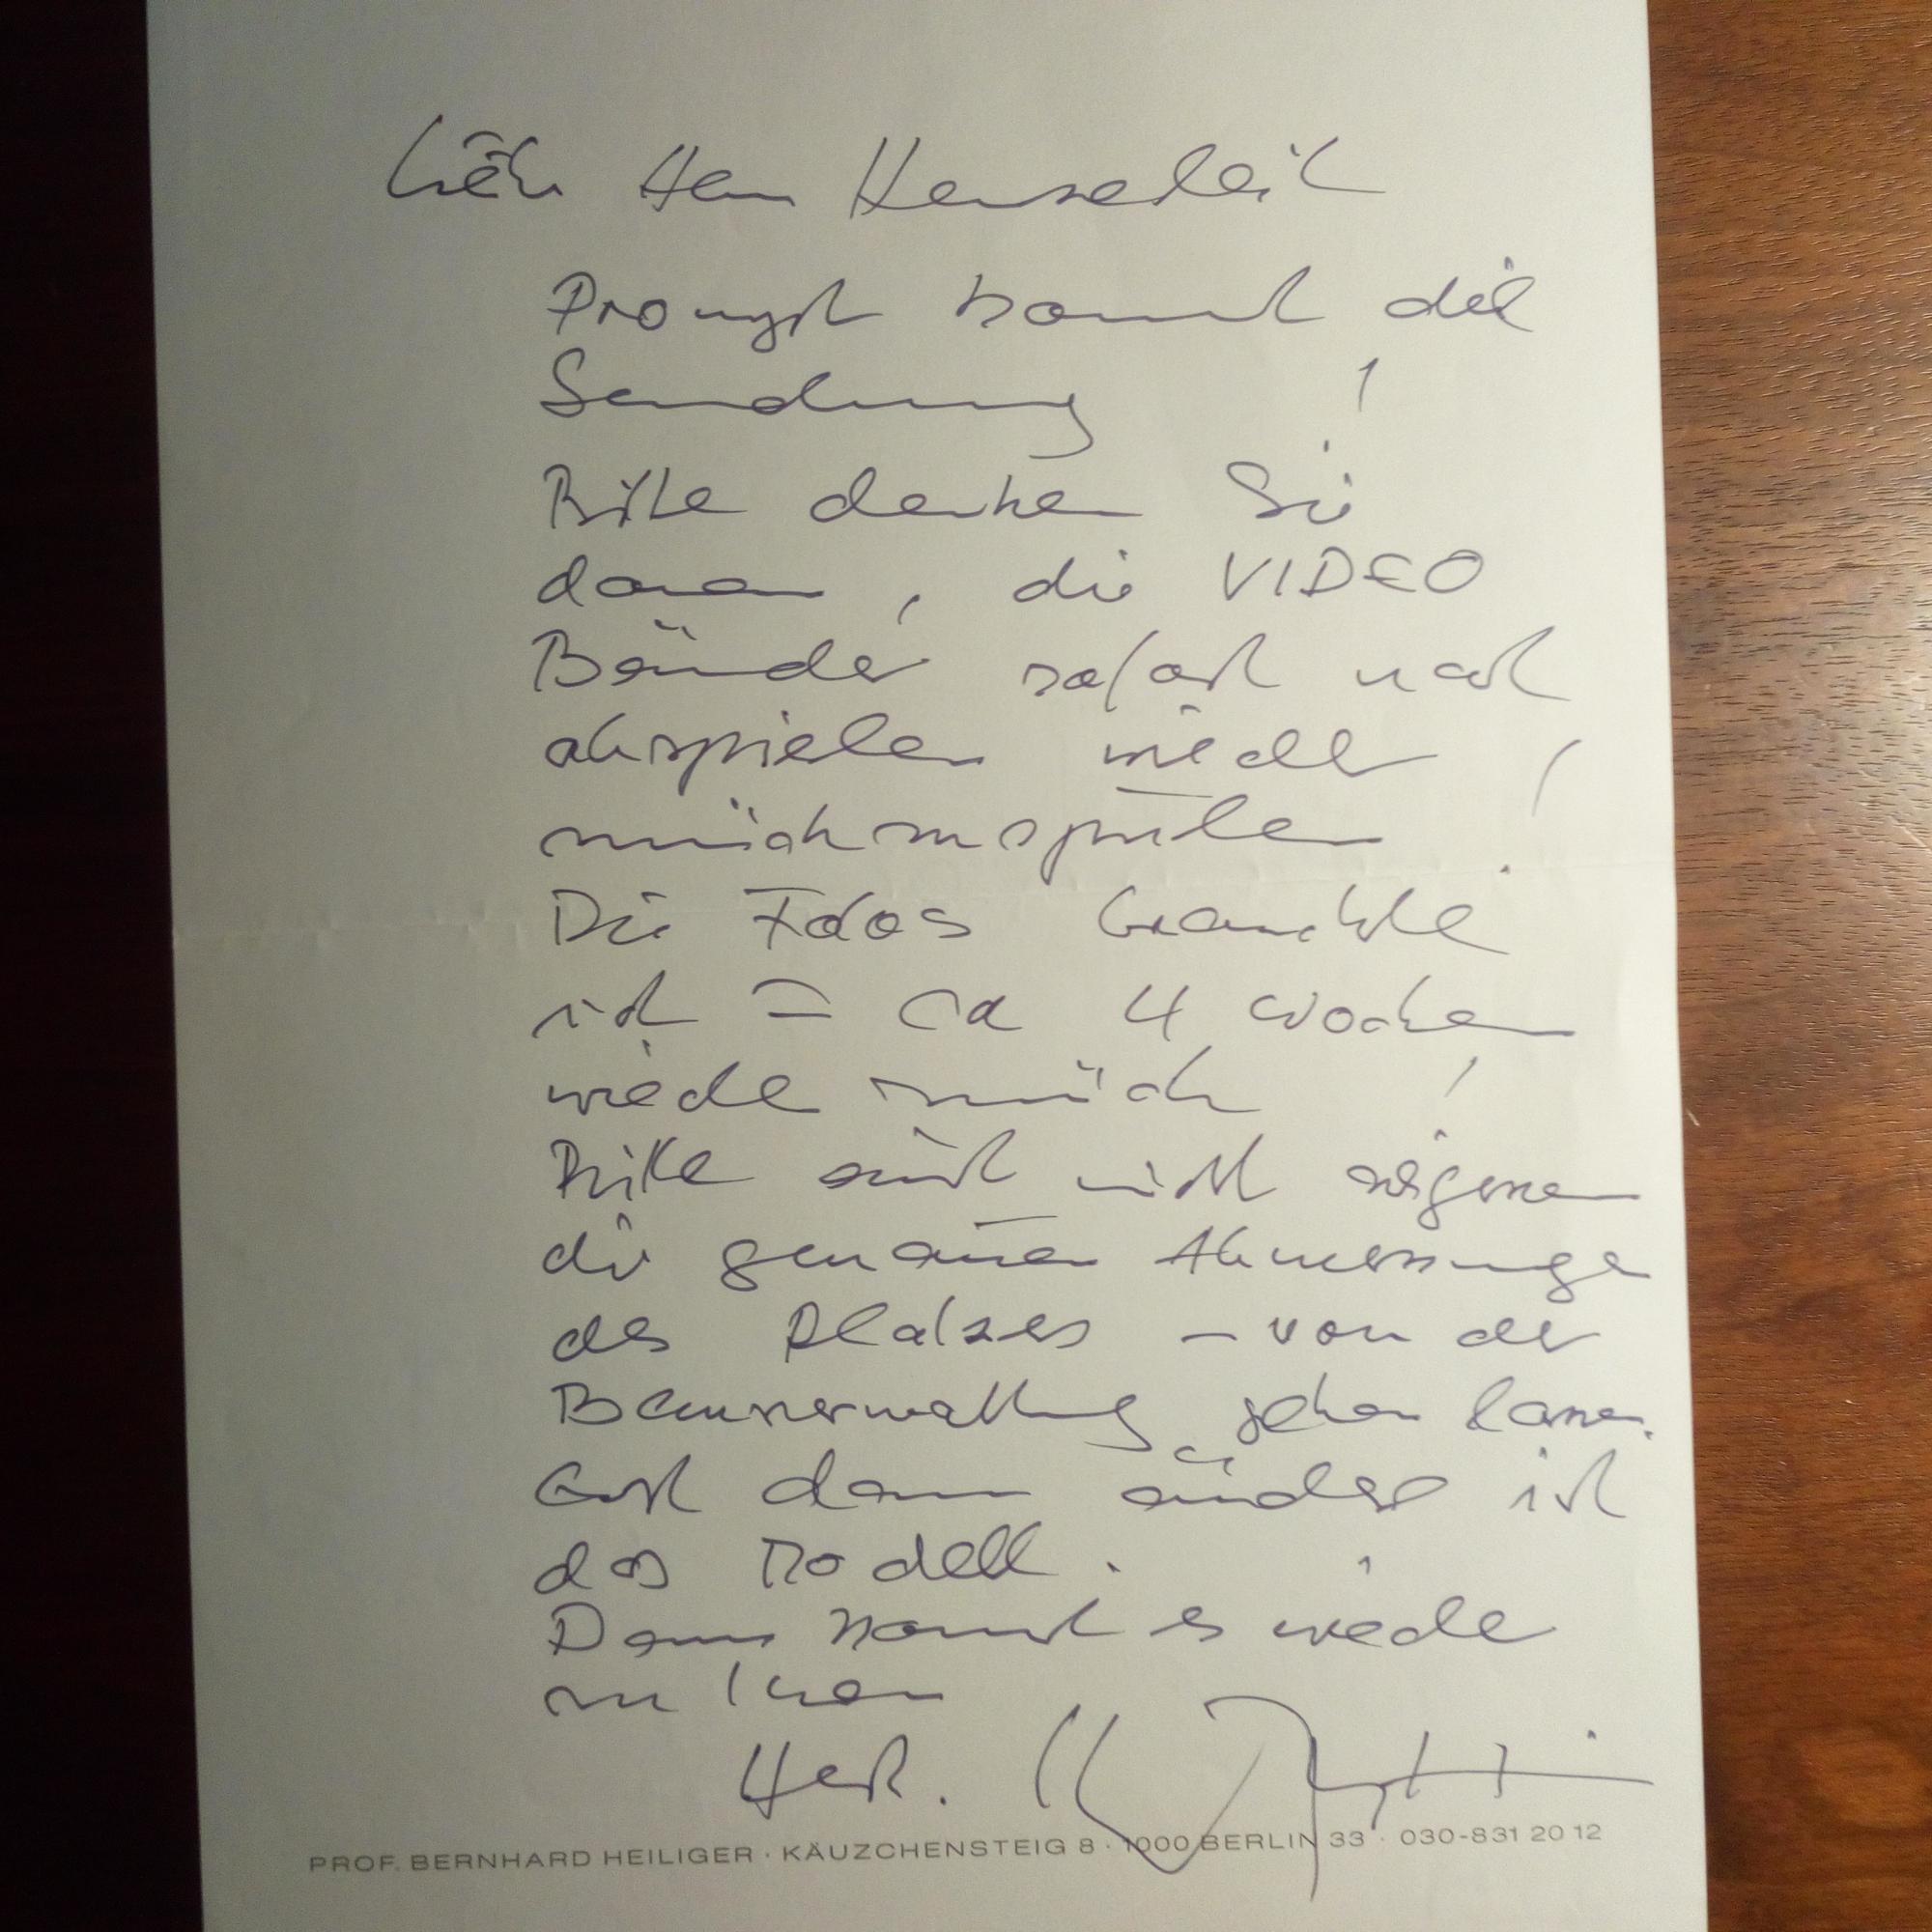 Lieber Herr Henseleit
Prompt kommt die
Sendung !
Bitte denken Sie
daran, die VIDEO
Bänder sofort nach
abspielen wieder
zurückzuspulen !
Die Fotos brauchte
ich = ca 4 Wochen
wieder zurück !
Bitte mir nicht
die genauen Abmessungen
des Platzes – von der
Bauverwaltung geben lassen.
Erst dann ändere ich
das Modell.
Dann kommt es wieder
zu Ihnen
Herzl.
PROF. BERNHARD HEILIGER · KÄUZCHENSTEIG 8 · 1000 BERLIN 33 · 030-831 20 12